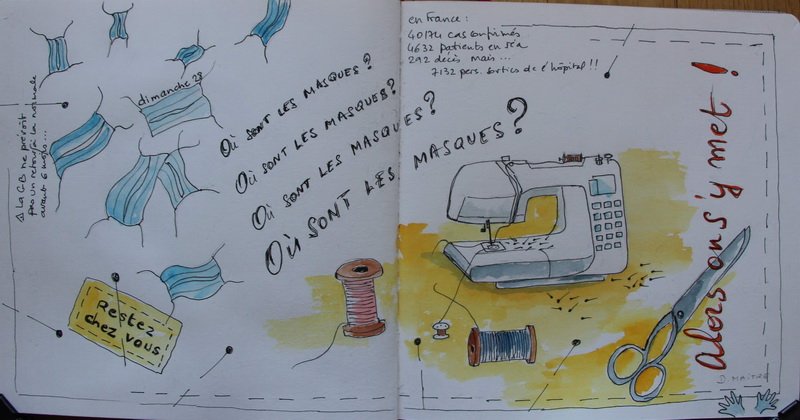 dimanche 28
Où SONT LES MASQUES?
Où SONT LES MASQUES?
Où SONT LES MASQUES?
Où SONT LES MASQUES?
⚠ la G.B ne prévoit
pas un retour à la normale
avant 6 mois...
Restez
chez vous
en France:
40174 cas confirmés
4632 patients en réa
292 décès mais...
7132 pers. sorties de l'hôpital!!
Alors on s'y met!
D. MAITRE